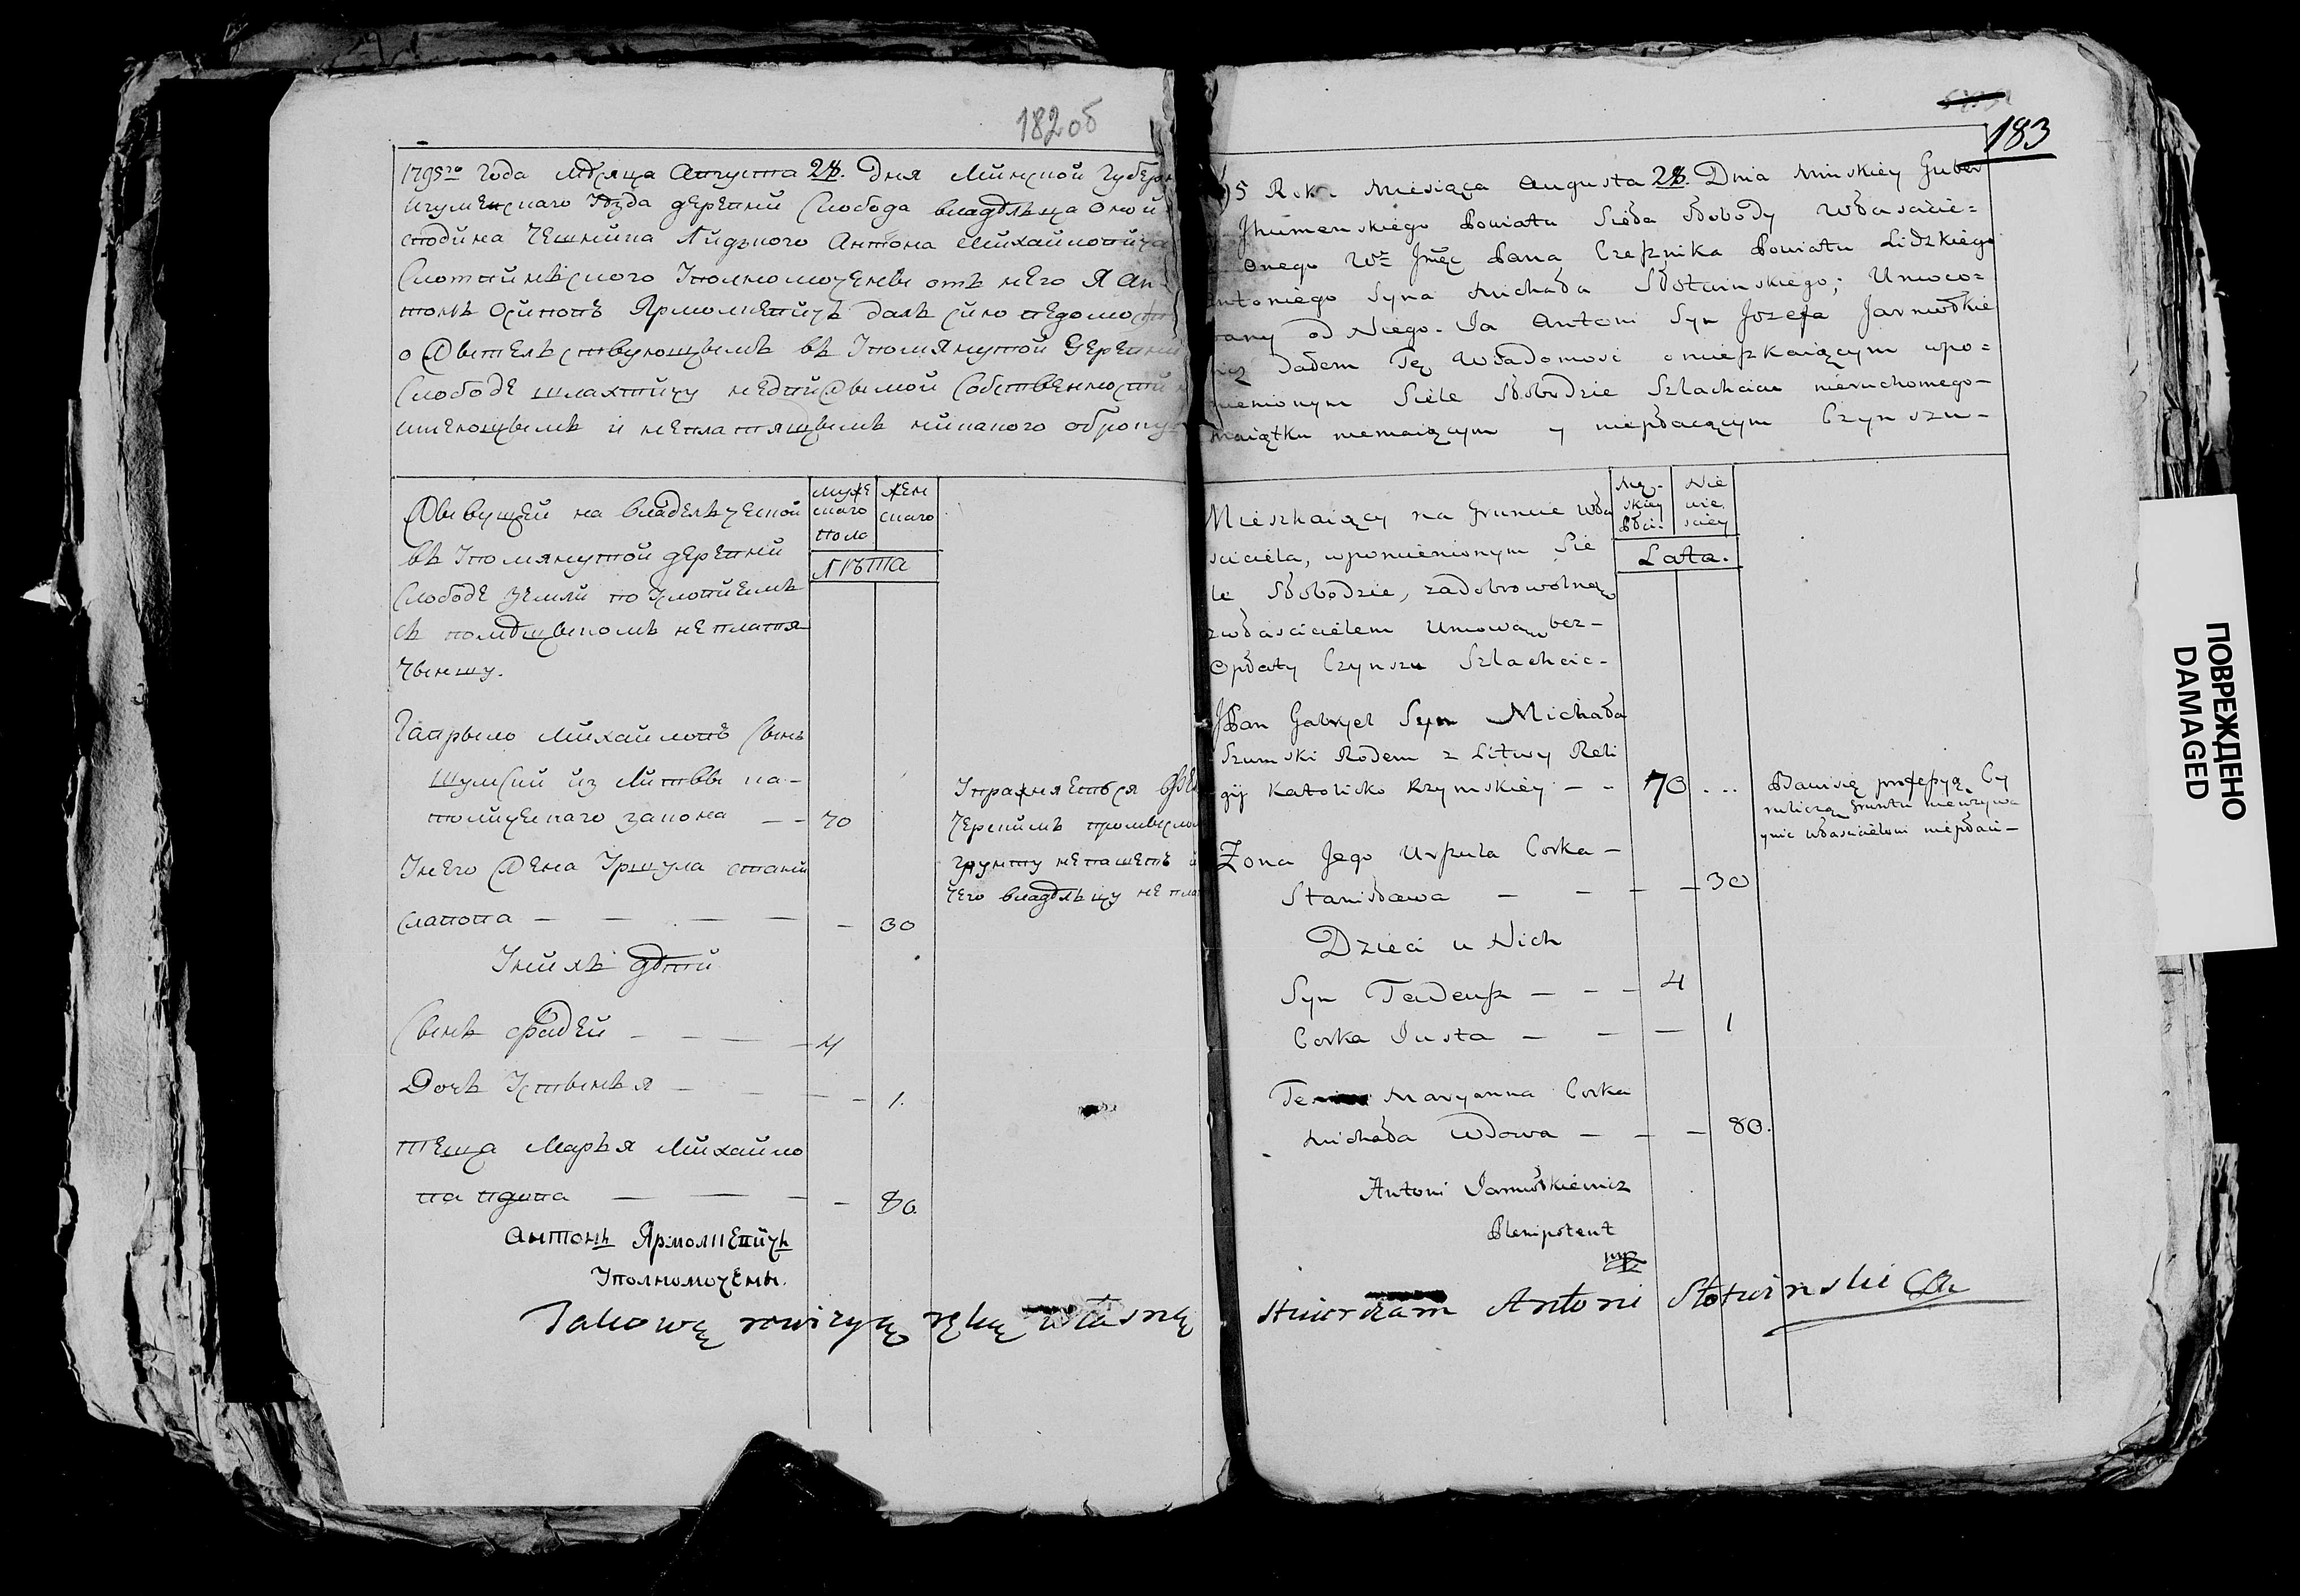 182об
1795го года мѣсяца Августа 28. дня Минской Губерн
Игуменскаго уѣзда деревни Слобода владѣльца оной
сподина Чешника Лидзкого Антона Михайловича
Слотвинского уполномоченны отъ него Я Ан-
тонъ Осиповъ Ярмолкевичъ далъ сию ведомость
о жытельствующымъ въ упомянутой деревни
Слободе шляхтичу недвижымой собственности
имеющымъ и неплатящымъ никакого оброку
Жывущей на владельческой
въ упомянутой деревни
Слободе земли по условиемъ
съ помѣщыкомъ неплатя
чыншу.
муже
скаго
пола
жен
скаго
лѣта
Гаврыло Михайловъ сынъ
Шумский из Литвы ка-
толическаго закона — — 70
Упражняеться
Черскимъ промысло
грунту непашетъ и
чего владѣльцу не пла
Унего жена Уршула стани
славова — — — — — 30
Уних дѣти
Сынъ Фадей — — — — 4
Дочъ Устынья — — — — 1.
Теща Марья Михайло
ва вдова — — — — 80.
Антонъ Ярмолкевичъ
Уполномочены.
Takową rewizyą ręką własną
183
95 Roku Miesiąca Augusta 28. Dnia Minskiey Guber
Jhumenskiego Powiatu Sioła Słobody Właścicie=
onego Wo Jmęc Pana Czesznika Powiatu Lidzkiego
Antoniego Syna Michała Słotwinskiego; Umoco=
wany od Niego. Ja Antoni Syn Jozefa Jarmołkie
wicz dałem Tę Wiadomosć o mieszkaiącym wpo=
mienionym Siele Słobodzie Szlachcicu nieruchomego—
Maiątku niemaiącym y niepłacącym Czynszu—
Mieszkaiący na Gruncie Wła
sciciela, wpomienionym Sie
le Słobodzie, zadobrowolną
zwłascicielem Umową bez—
Opłaty Czynszu Szlachcic—
Mę-
skiey
Płci.
Nie
wie
sciey
Lata.
JPan Gabryel Syn Michała
Szumski Rodem z Litwy Reli
gij Katolicko Rzymskiey — — 70 . . .
Bawisię professyą Cy
ruliczą Gruntu nieużywa
ynic własciciélowi niepłaci—
Zona Jego Urszula Corka —
Stanisława — — — — 30
Dzieci u Nich
Syn Tadeusz — — — 4
Corka Justa — — — 1
Te Maryanna Corka
Michała Wdowa — — — 80.
Antoni Jarmołkiewicz
Plenipotent
mp
stwierdzam Antoni Słotwinski
ПОВРЕЖДЕНО
DAMAGED